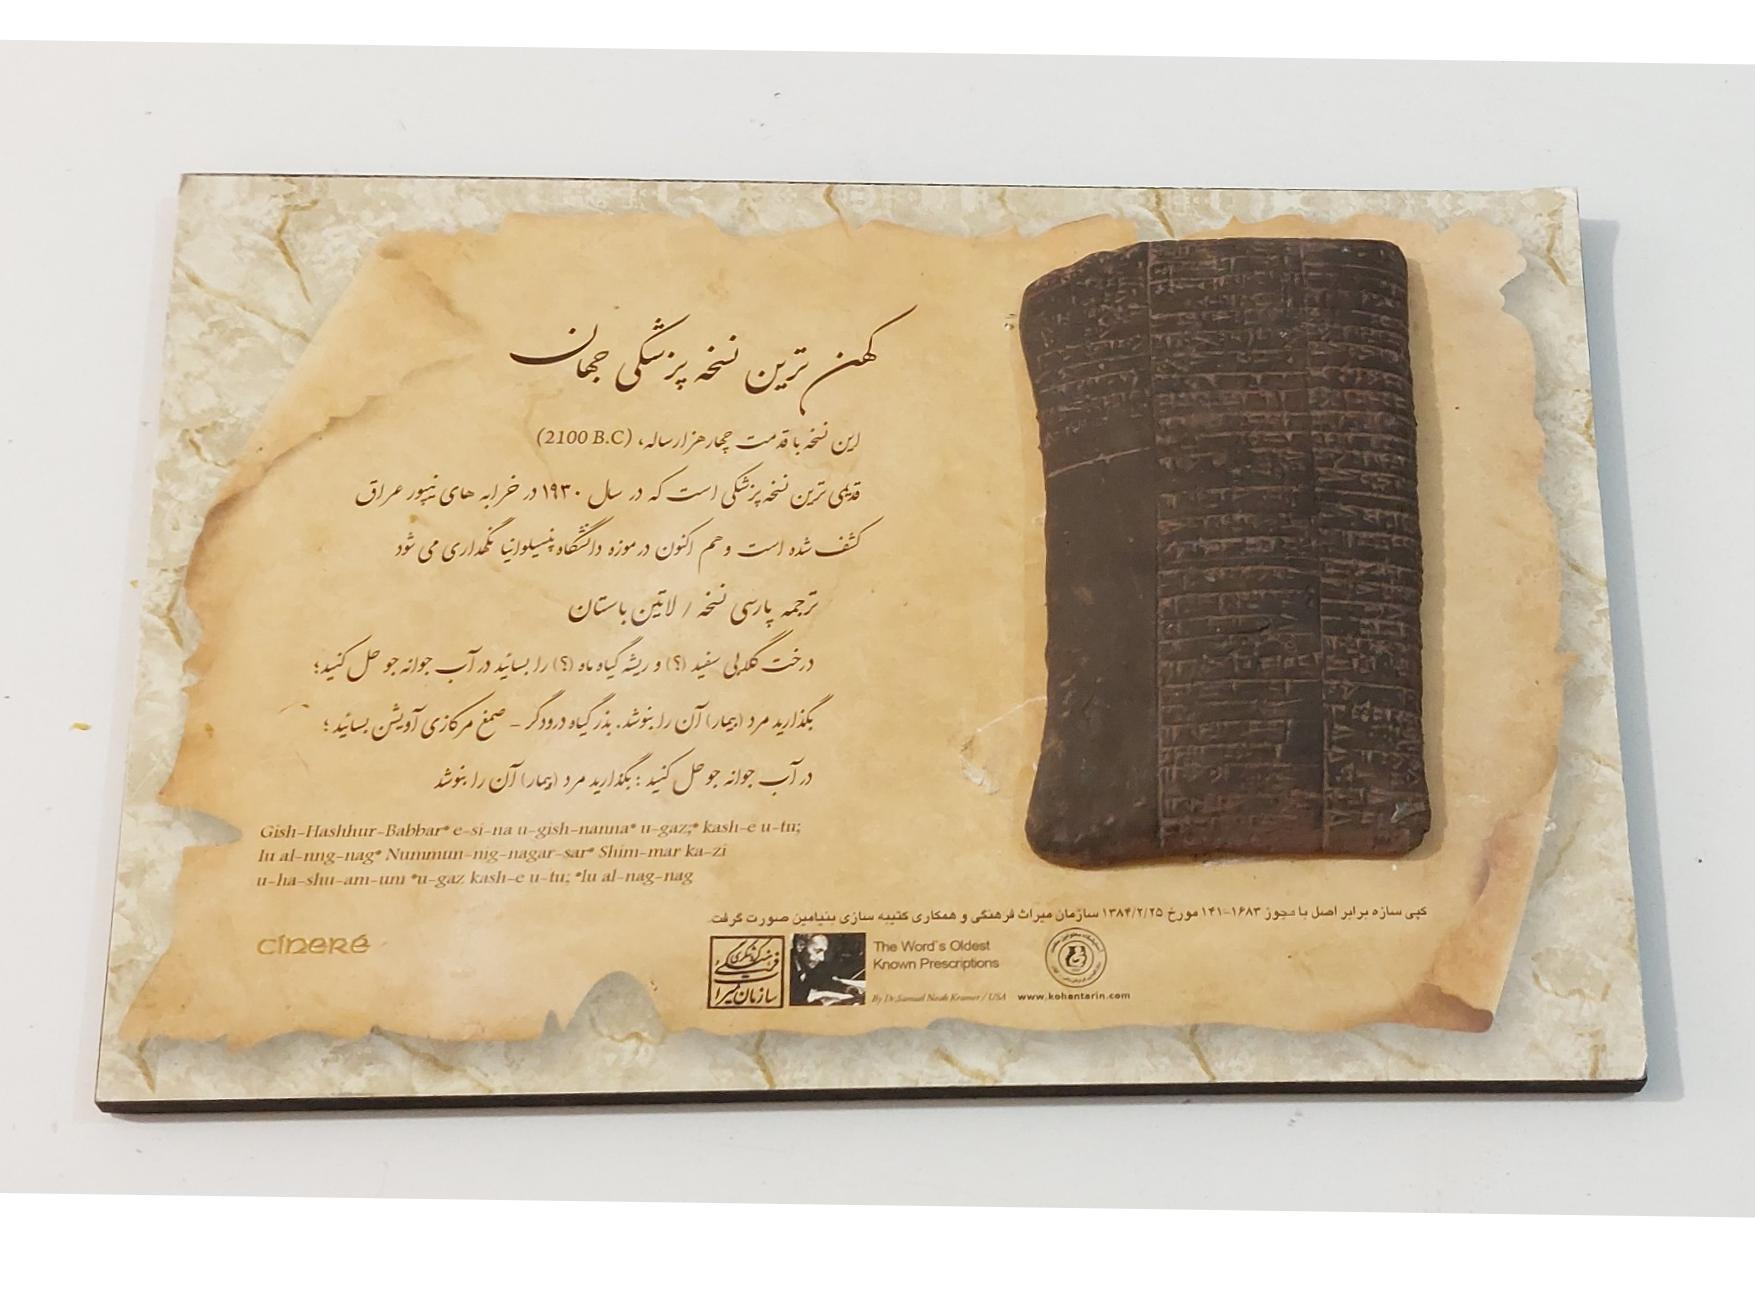 کهن ترین نسخه پزشکی جهان
این نسخه با قدمت چهار هزار ساله، (2100 B.C)
قدیمی ترین نسخه پزشکی است که در سال ۱۹۳۰ در خرابه های نیپور عراق
کشف شده است و هم اکنون در موزه دانشگاه پنسیلوانیا نگهداری می شود
ترجمه پارسی نسخه / لاتین باستان
درخت گلابی سفید (؟) و ریشه گیاه ماه (؟) را بسائید در آب جوانه جو حل کنید؛
بگذارید مرد (بیمار) آن را بنوشد. بذر گیاه درودگر - صمغ مرکازی آویشن بسائید؛
در آب جوانه جو حل کنید : بگذارید مرد (بیمار) آن را بنوشد
Gish-Hashhur-Babbar* e-si-na u-gish-nanna* u-gaz;* kash-e u-tu;
lu al-nng-nag* Nummun-nig-nagar-sar* Shim-mar ka-zi
u-ha-shu-am-um *u-gaz kash-e u-tu; *lu al-nag-nag
کپی سازه برابر اصل با مجوز ۱۶۸۳-۱۴۱ مورخ ۱۳۸۴/۲/۲۵ سازمان میراث فرهنگی و همکاری کتیبه سازی بنیامین صورت گرفت.
cineré
سازمان میراث فرهنگی و گردشگری
The Word's Oldest
Known Prescriptions
By Dr.Samuel Noah Kramer / USA
www.kohantarin.com